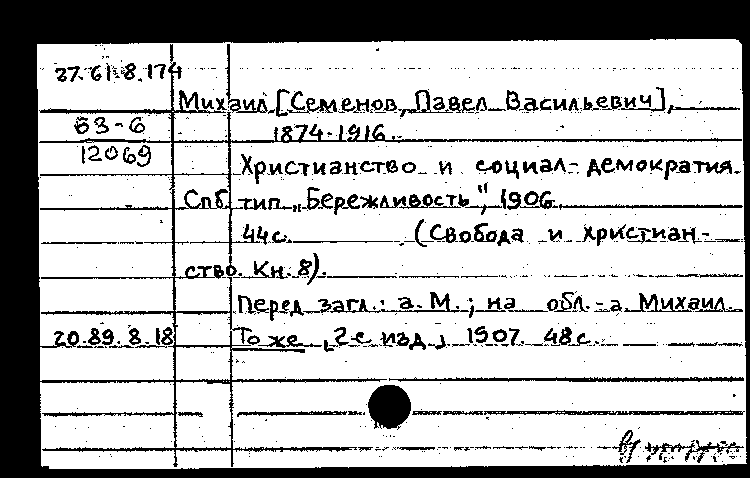 37.61.8.174
Михаил [Семенов, Павел Васильевич],
63-6
1874-1916.
12069
Христианство и социал-демократия.
Спб. тип. „Бережливость", 1906.
44с. (Свобода и христиан-
ство. Кн. 8).
Перед загл.: а. М.; на обл.-а. Михаил.
20.89.8.18 То же, [2-е изд.], 1907. 48с.